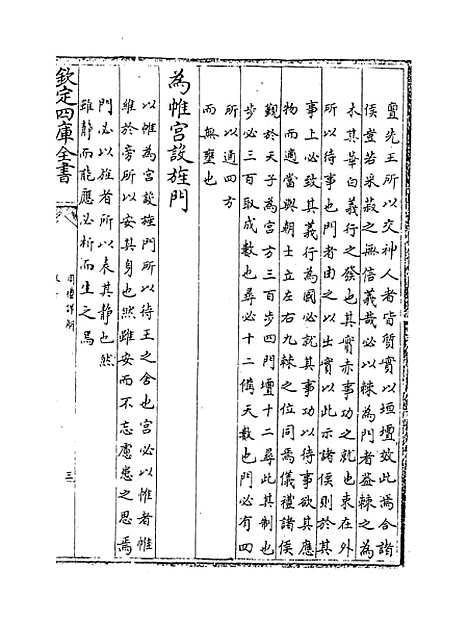 賓先王所以交神人者皆質實以垣壇效此焉合諸
侯豈若采菽之無信義哉必以棘為門者蓋棘之為
木其華白義行之發也其實赤事功之就也束在外
所以待事也門者由之以出實以此示諸侯則於其
事上必致其義行為國必就其事功以待事欲其應
物而適當與朝士立左右九棘之位同焉儀禮諸侯
覲於天子為宫方三百步四門壇十二尋此其制也
步必三百取成數也尋必十二備天數也門必有四
所以通四方
而無壅也
為帷宫設旌門
以帷為宫設旌門所以待王之舍也宫必以帷者帷
維於旁所以安其身也然雖安而不忘慮患之思焉
門必以旌者所以表其静也然
雖静而能應必析而生之焉
欽定四庫全書
周禮詳解
三